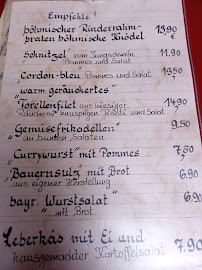 Empfehle!
böhmischer Rinderrahm- 13,90
braten böhmische Knödel
Schnitzel vom Jungschwein 11.90
Pommes und Salat
Cordon-bleu Pommes und Salat 13,50
"warm geräuchertes"
Forellenfilet aus hiesiger 14,90
Räucherei knusprigen Rösti und Salat
Gemüsefrikadellen 9.50
an bunten Salaten
"Currywurst" mit Pommes 7,50
"Bauernsülz" mit Brot 6,90
aus eigener Herstellung
bayr. Wurstsalat" 6.90
mit Brot
Leberkäs mit Ei und 7.90
hausgemachter Kartoffelsalat